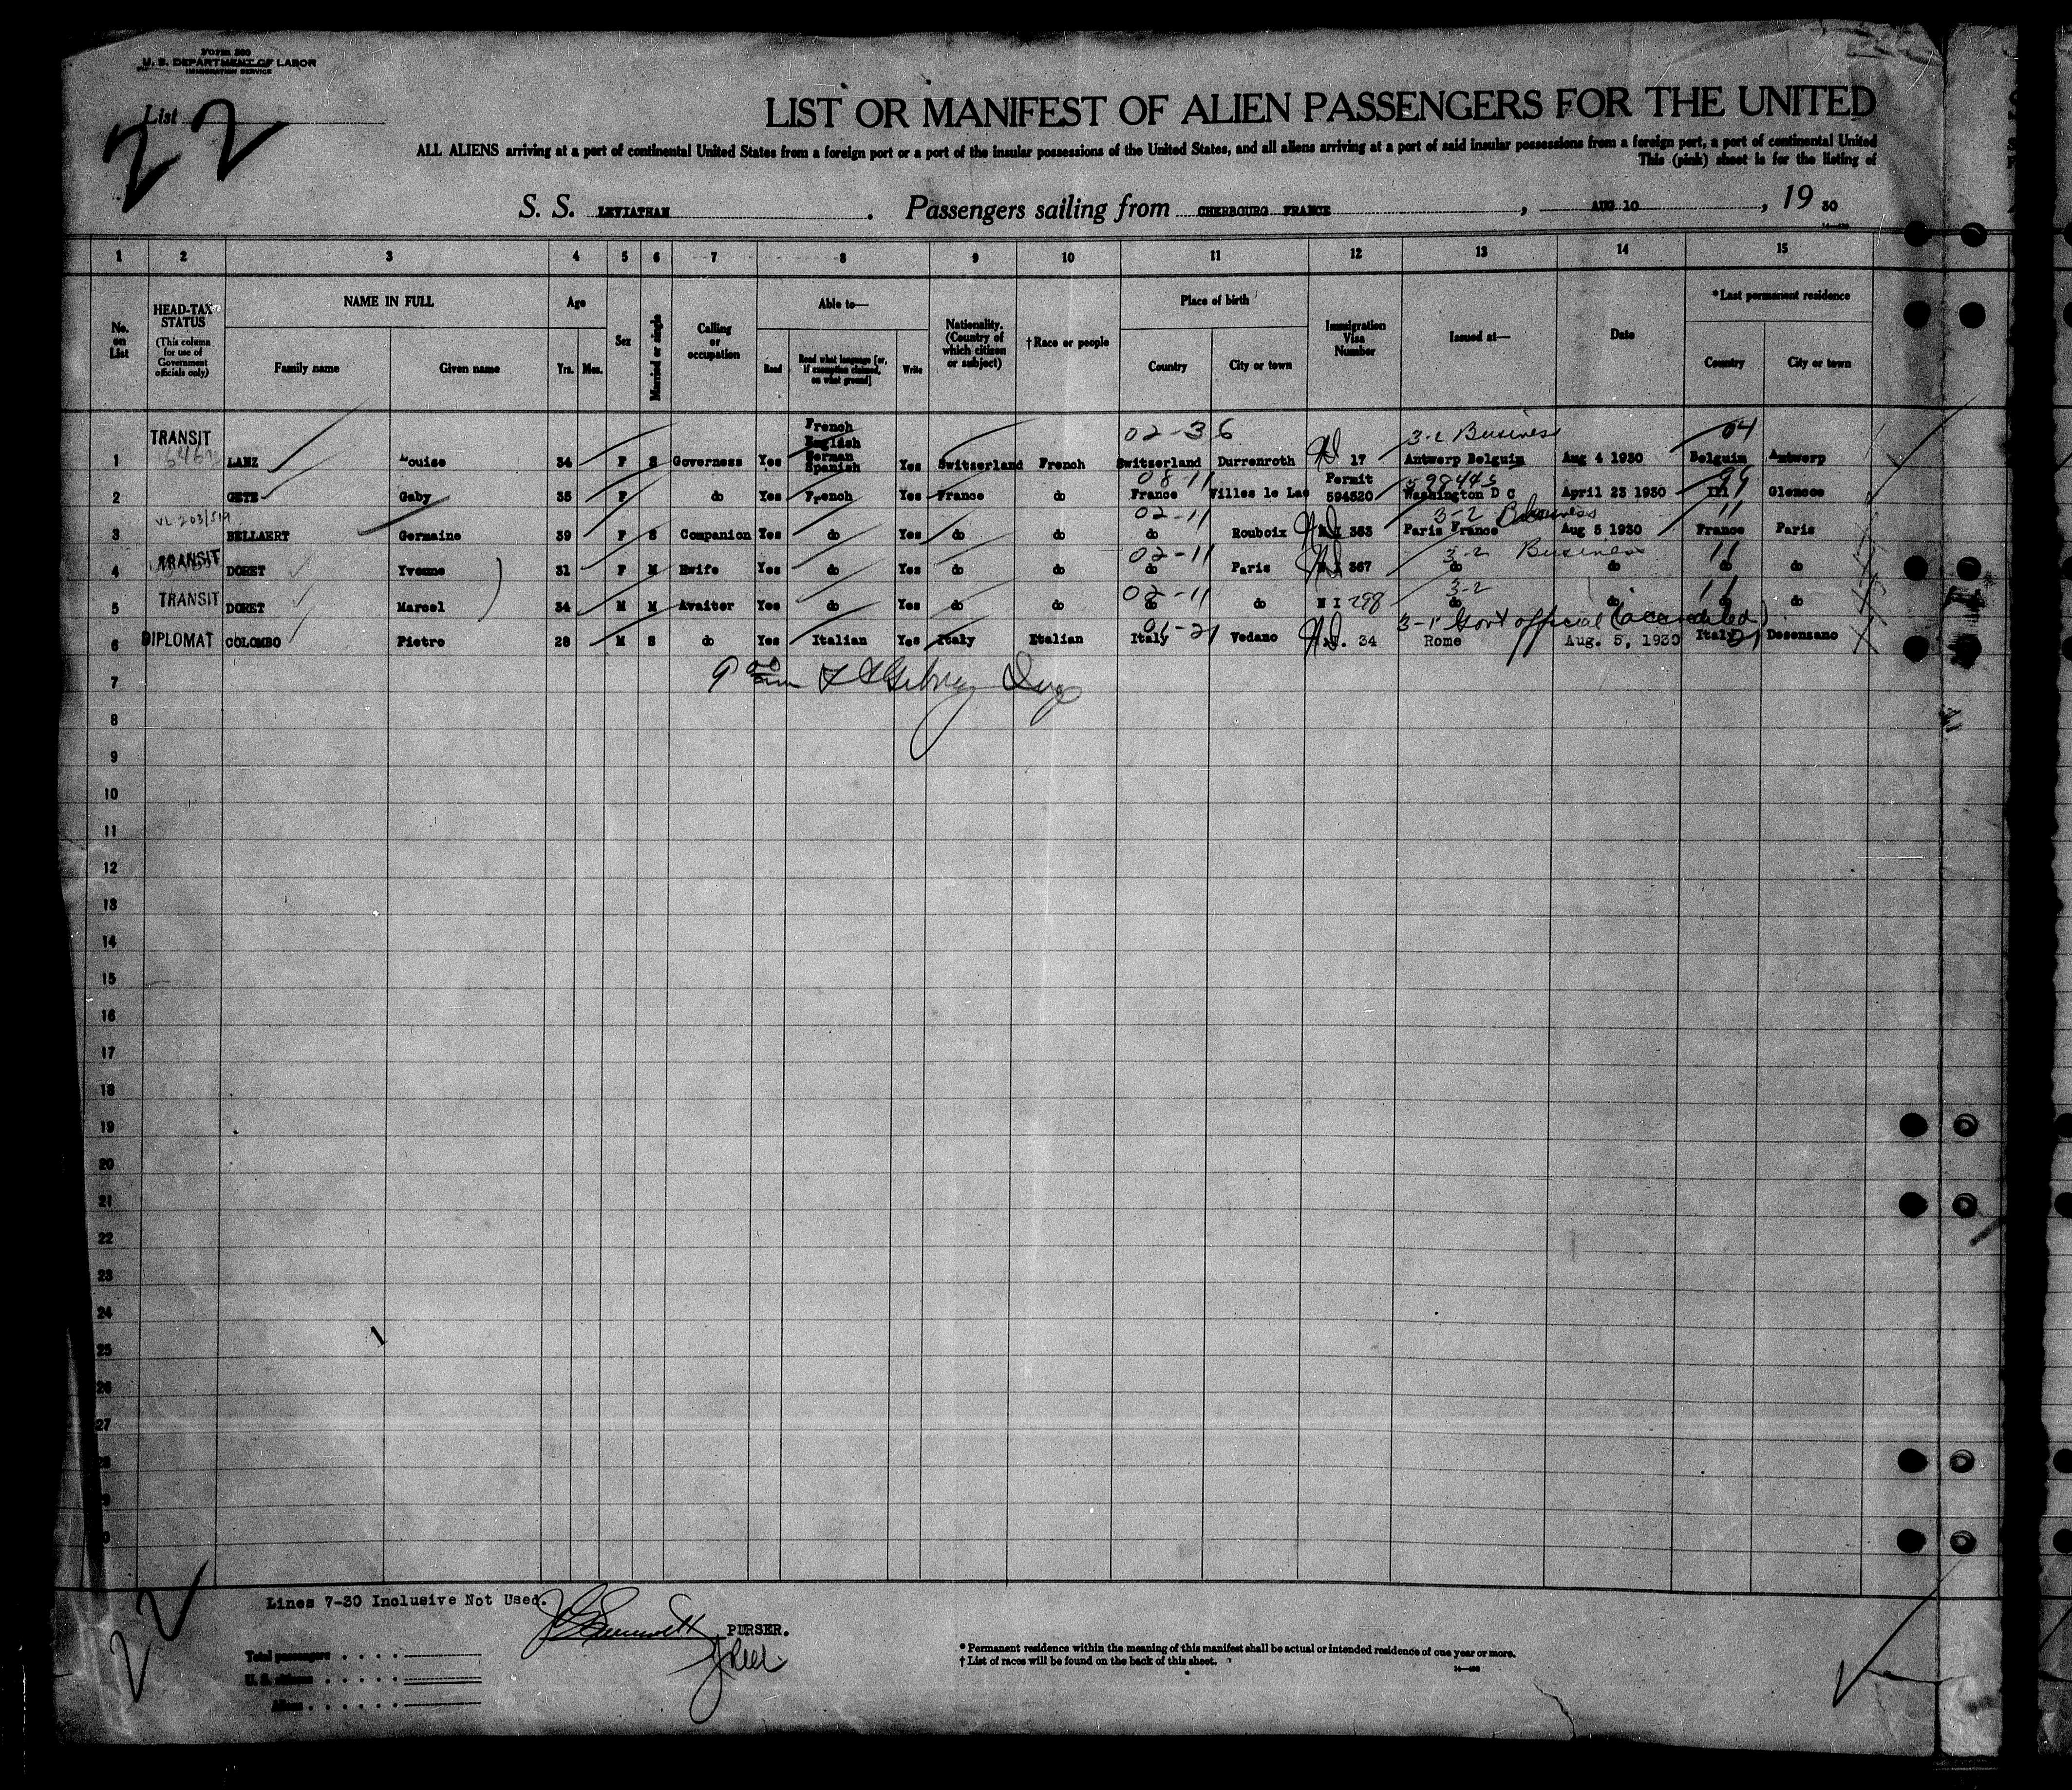 Form 500
U. S. DEPARTMENT OF LABOR
IMMIGRATION SERVICE
List 22
LIST OR MANIFEST OF ALIEN PASSENGERS FOR THE UNITED
ALL ALIENS arriving at a port of continental United States from a foreign port or a port of the insular possessions of the United States, and all aliens arriving at a port of said insular possessions from a foreign port, a port of continental United
This (pink) sheet is for the listing of
S. S. LEVIATHAN . Passengers sailing from CHERBOURG FRANCE , AUG 10 , 19 30
1 2 3 4 5 6 7 8 9 10 11 12 13 14 15
No. on List
HEAD-TAX STATUS
(This column for use of Government officials only)
NAME IN FULL
Family name Given name
Age
Yrs. Mos.
Sex
Married or single
Calling or occupation
Able to—
Read Read what language [or, if exemption claimed, on what ground] Write
Nationality. (Country of which citizen or subject)
†Race or people
Place of birth
Country City or town
Immigration Visa Number
Issued at—
Date
*Last permanent residence
Country City or town
French
English
German
02-36 3-2 Business 04
1 TRANSIT LANZ Louise 34 F S Governess Yes Spanish Yes Switzerland French Switzerland Durrenroth 17 Antwerp Belguim Aug 4 1930 Belguim Antwerp
08-11 Permit 598445 99
2 GETE Gaby 35 F do Yes French Yes France do France Villes le Lac 594520 Washington D C April 23 1930 Ill Glencoe
VL 203/519 02-11 3-2 Business 11
3 BELLAERT Germaine 39 F S Companion Yes do Yes do do do Rouboix 353 Paris France Aug 5 1930 France Paris
02-11 3-2 Business 11
4 TRANSIT DORET Yvonne 31 F M Hwife Yes do Yes do do do Paris 367 do do do do
02-11 3-2 11
5 TRANSIT DORET Marcel 34 M M Avaiter Yes do Yes do do do do N I 298 do do do do
01-21 3-1 Govt official (accredited) 21
6 DIPLOMAT COLOMBO Pietro 28 M S do Yes Italian Yes Italy Etalian Italy Vedano 34 Rome Aug. 5, 1930 Italy Desenzano
7 9 00 am
8
9
10
11
12
13
14
15
16
17
18
19
20
21
22
23
24
25
26
27
22
Lines 7-30 Inclusive Not Used.
PURSER.
Total passengers
U. S. citizens
Aliens
* Permanent residence within the meaning of this manifest shall be actual or intended residence of one year or more.
† List of races will be found on the back of this sheet.